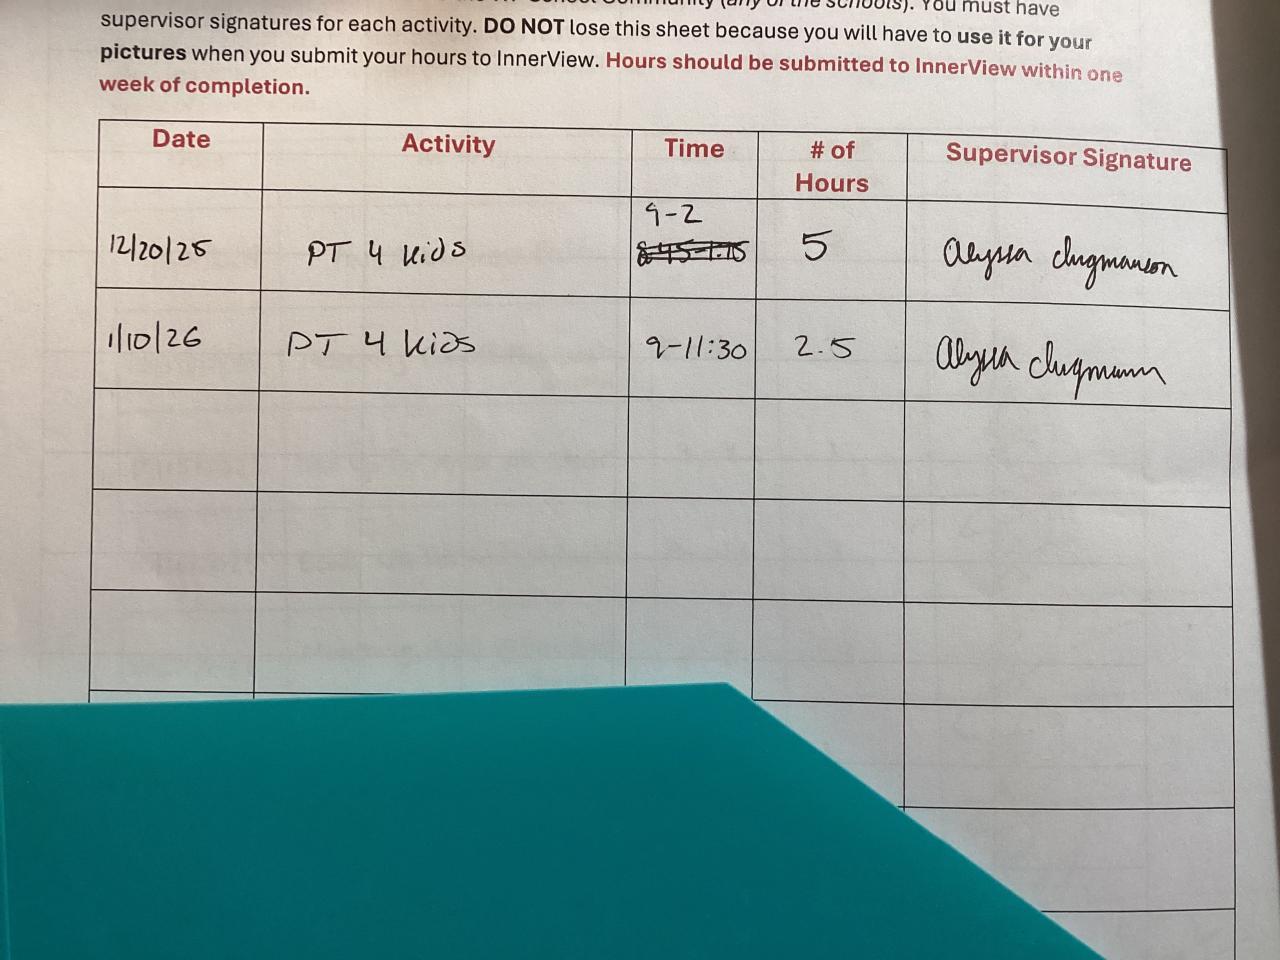 (any of the schools). You must have
supervisor signatures for each activity. DO NOT lose this sheet because you will have to use it for your
pictures when you submit your hours to InnerView. Hours should be submitted to InnerView within one
week of completion.
Date Activity Time # of Hours Supervisor Signature
9-2
12/20/25 PT 4 kids 8:45-1:15 5 Alyssa
1/10/26 PT 4 kids 9-11:30 2.5 Alyssa